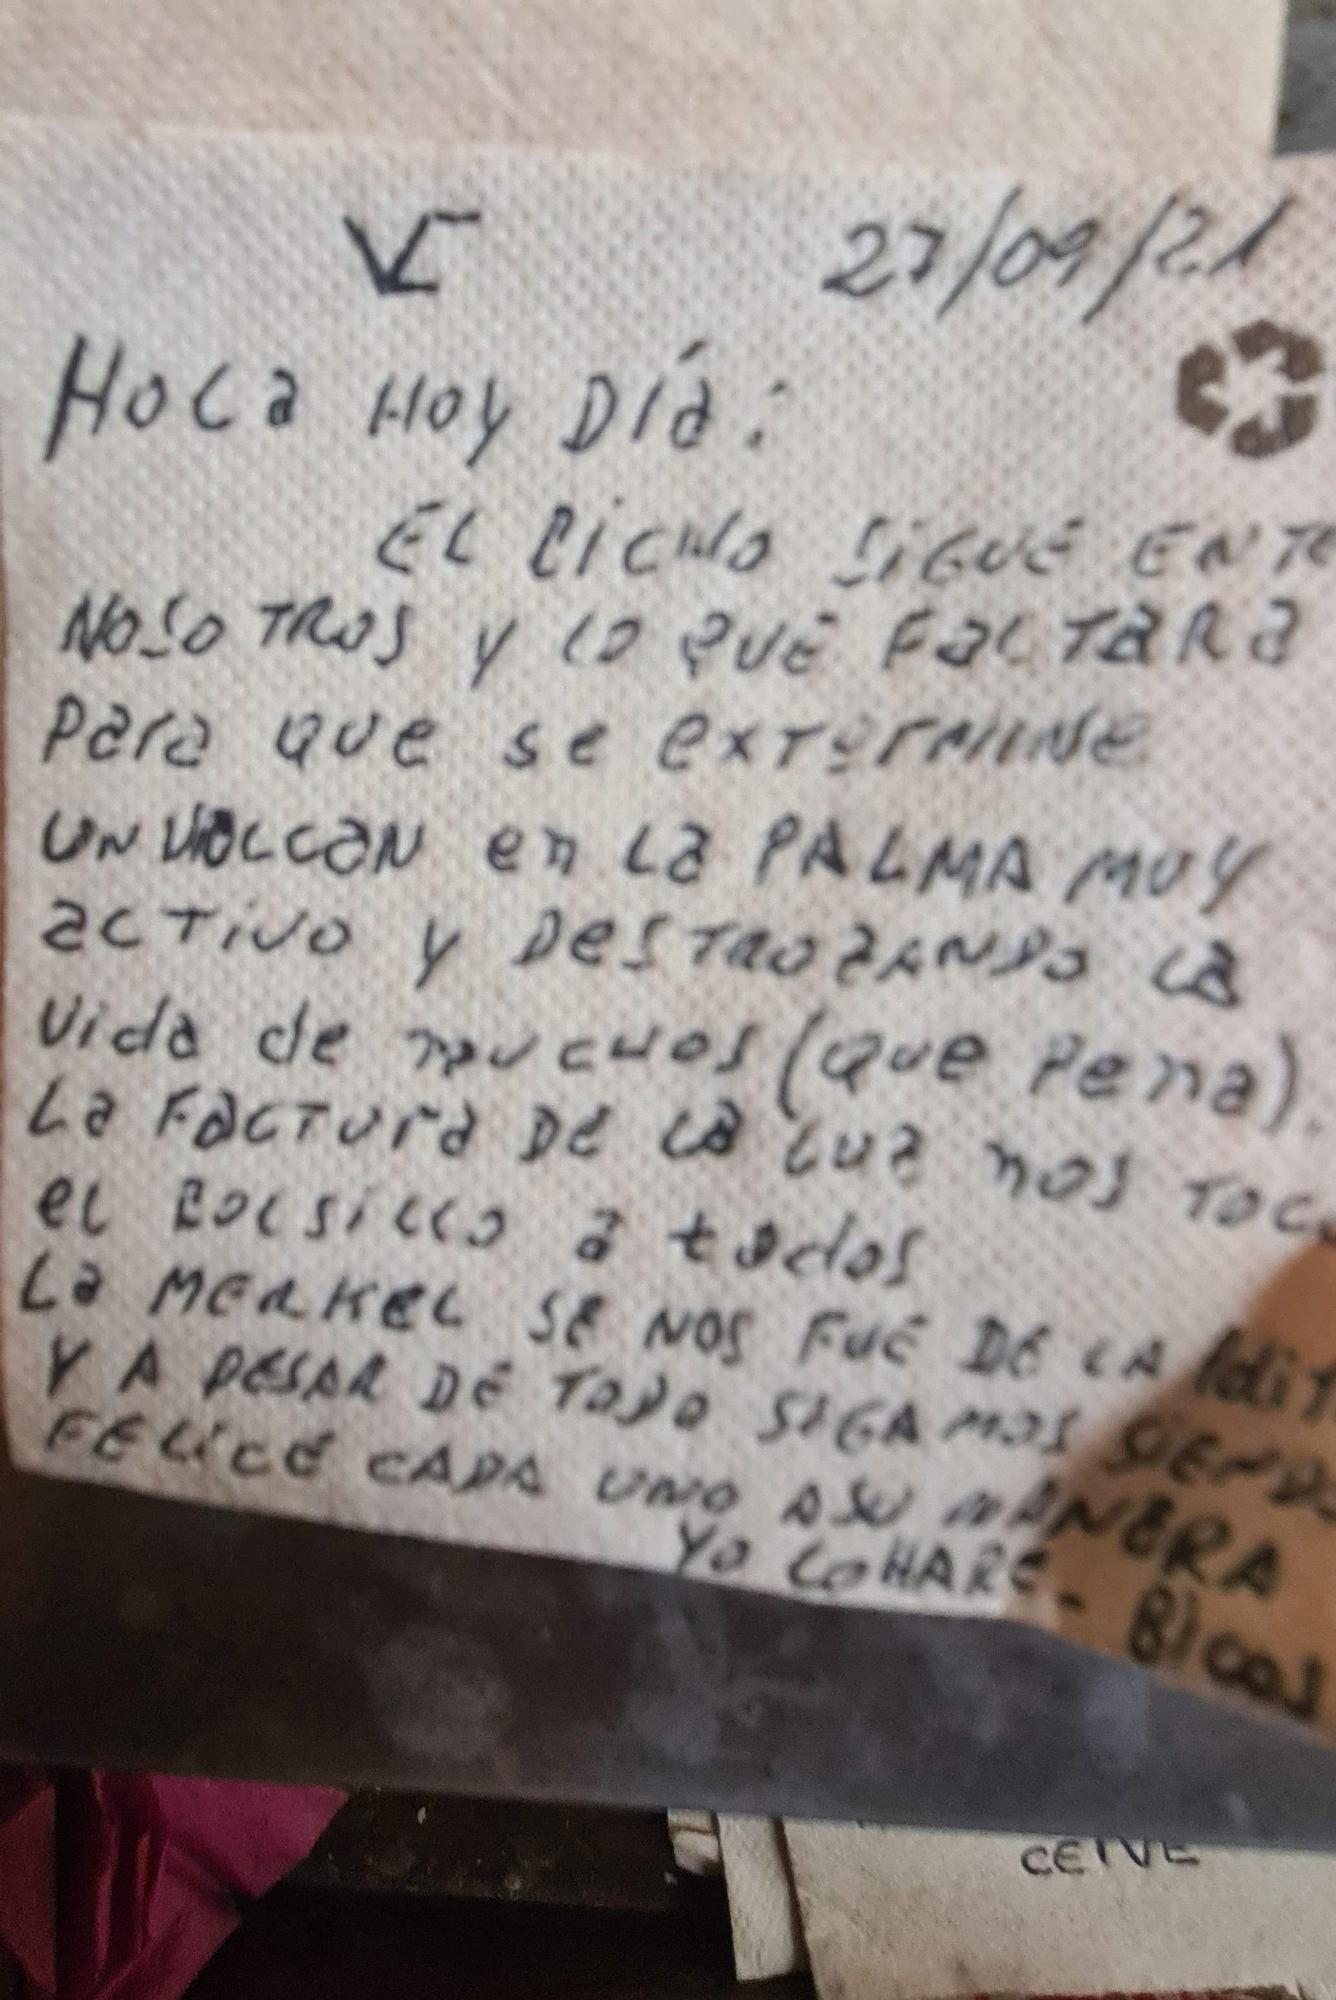 27/09/21
HOLa HOY Día:
EL BICHO SIGUE ENTE
NOSOTROS Y LO QUE FALTARA
Para que se extermine
UN VOLCCAN en La PALMA MUY
activo y DESTROZANDO La
Vida de muchos (que Pena).
La Factura DE La LUZ nos TOC
el BOLSILLO a todos
La MERKEL SE NOS FUE DE LA
Y A PESAR DE TODO SIGAMOS SIENDO
FELICE CADA UNO A SU MANERA
YO LO HARE. Bicos
CEIVE